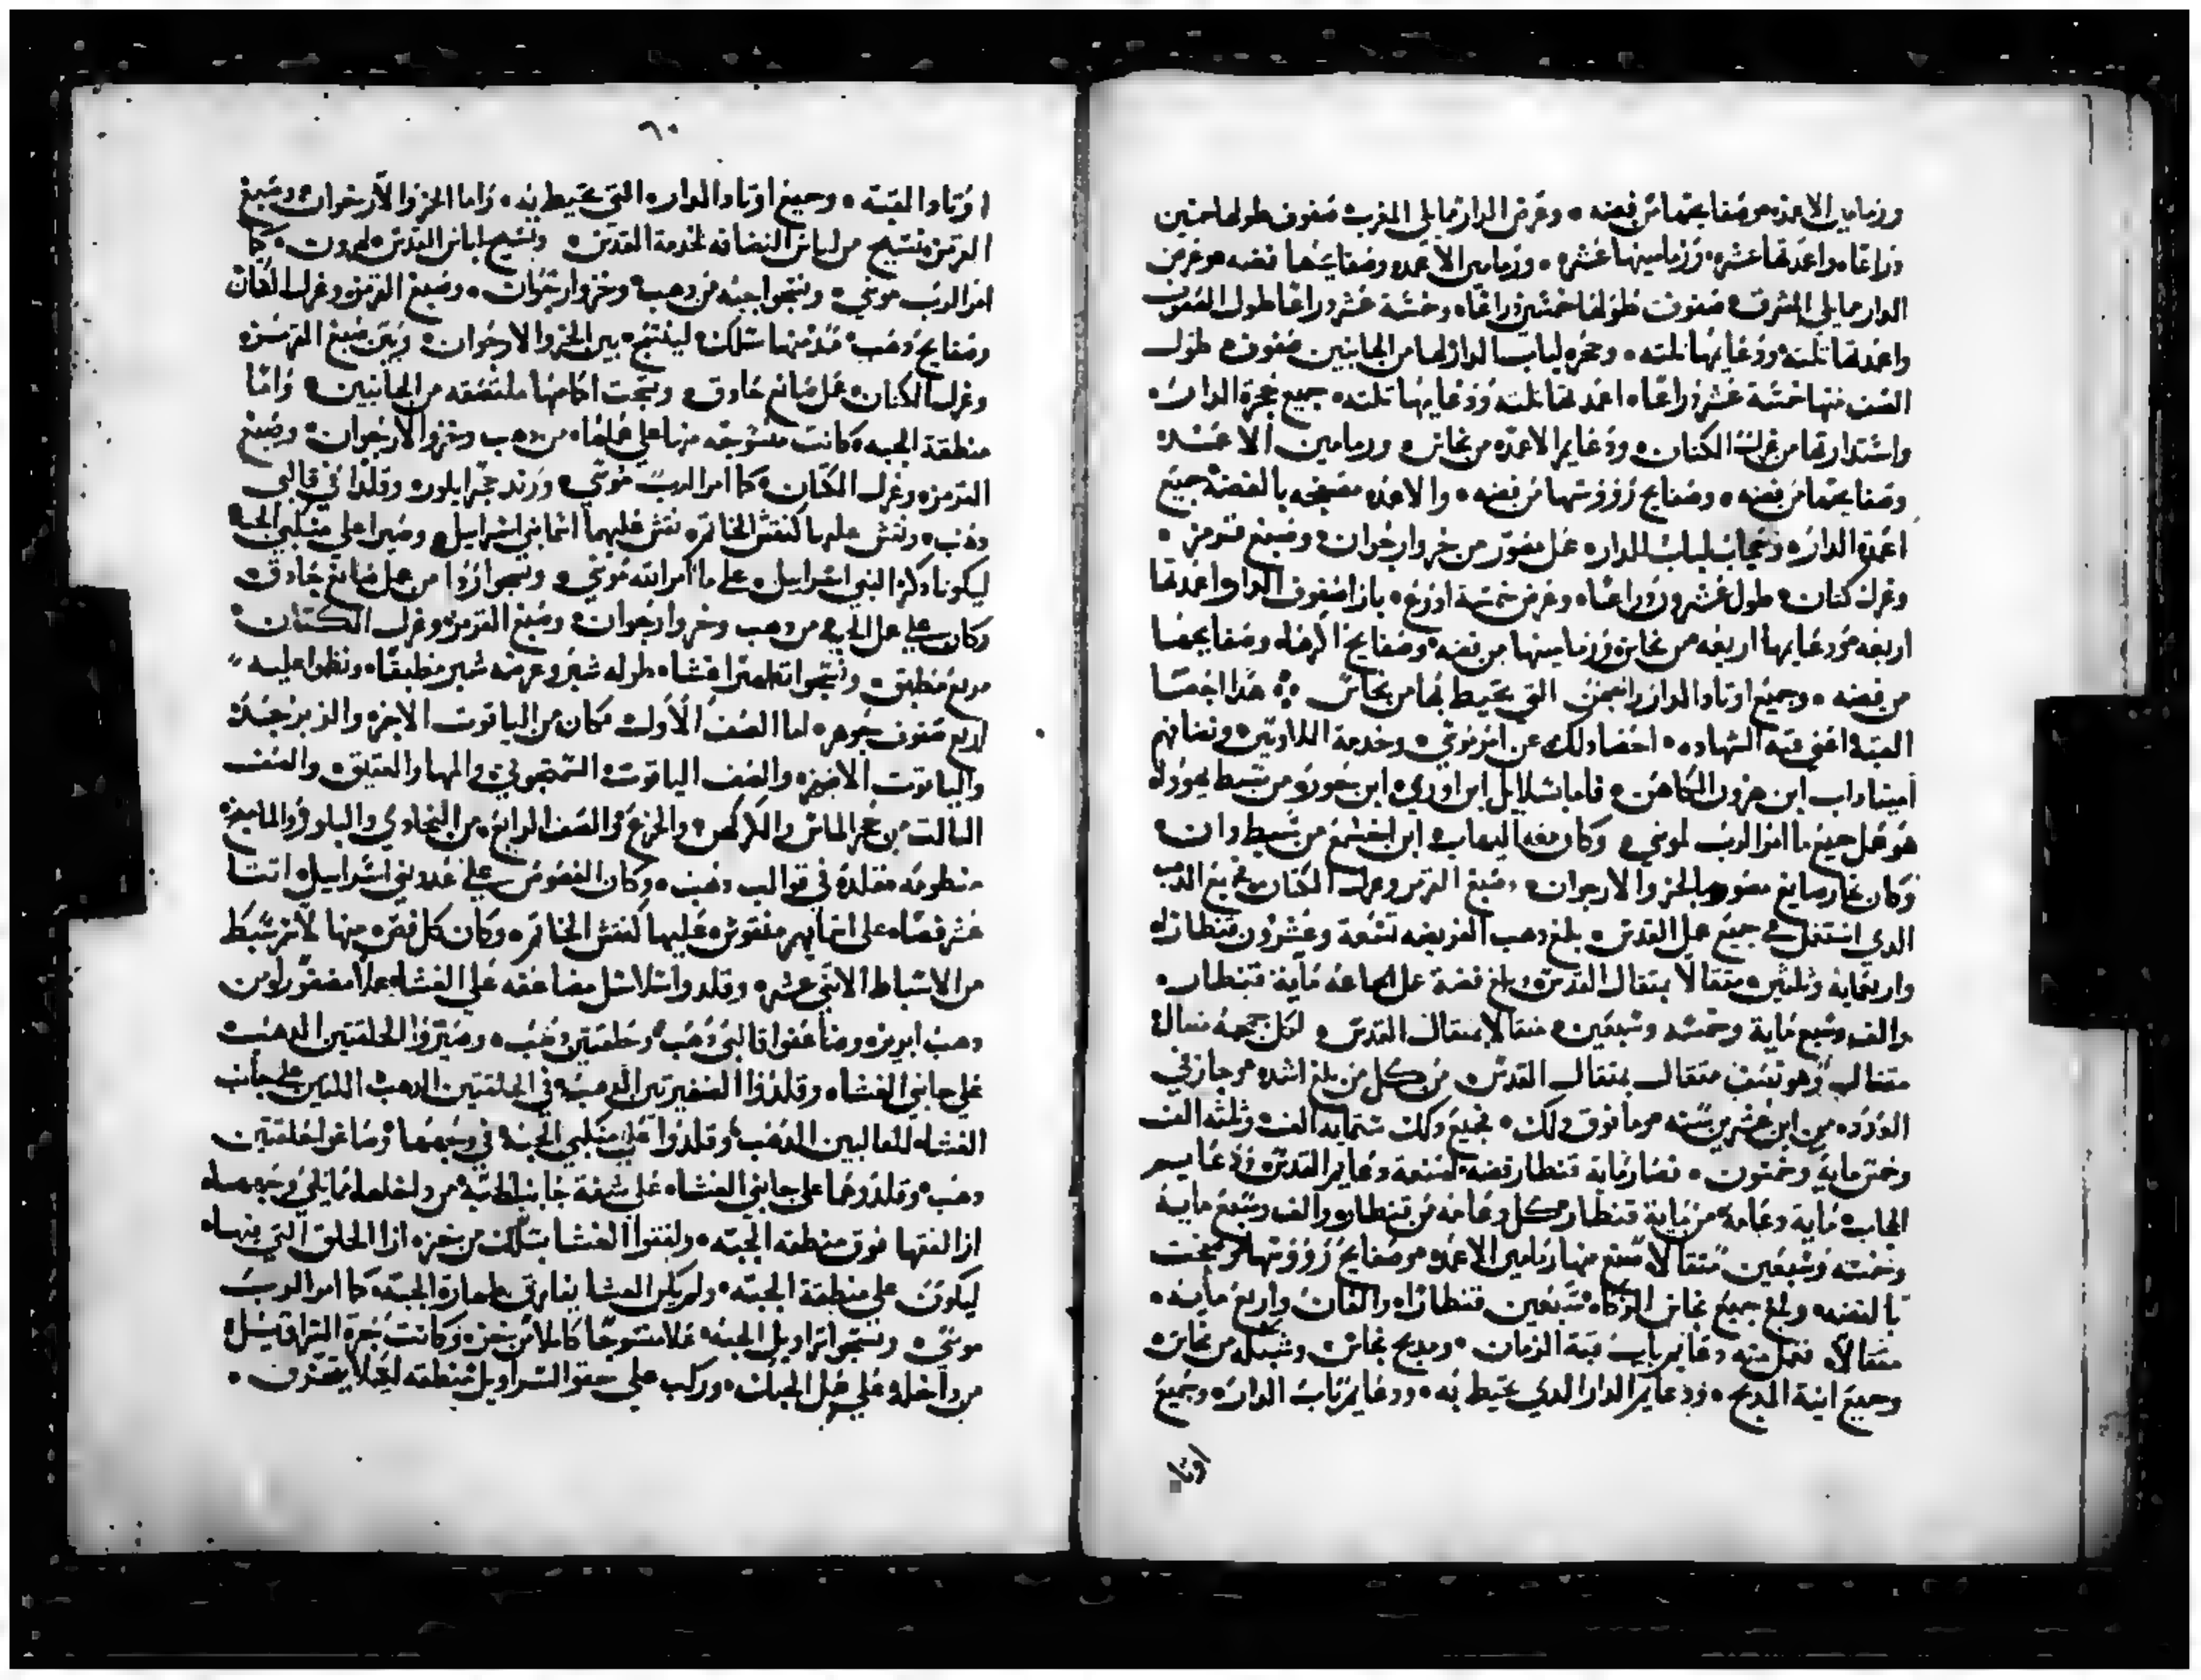 ورزمامين الاعمده وصفايحها من فضه • وعرض الدار مما يلي المغرب صفوف طولها خمسين
ذراعًا واعمدتها عشره ورزمامينها عشره • ورزمامين الاعمده وصفايحها فضه وعرض
الدار مما يلي المشرق صفوف طولها خمسين ذراعًا وخمسة عشر ذراعًا طول الصفوف
واعمدتها تلته ودعايمها تلته • وحجره لباب الدار لها من الجانبين صفوف طول
الصف منها خمسة عشر ذراعًا اعمدتها تلته ودعايمها تلته • جميع حجرة الدار
واستدارتها من غزل الكتان ودعايم الاعمده من نحاس ورزمامين الاعمده
وصفايحها من فضه • وصفايح رووسها من فضه • والاعمده مصفحه بالفضه جميع
اعمدة الدار وحجاب لباب الدار • عمل مصور من خز وارجوان وصبغ قرمز •
وغزل كتان • طول عشرون ذراعًا وعرض خمسة اذرع • بازا صفوف الدار واعمدتها
اربعه ودعايمها اربعه من نحاس ورزمامينها من فضه وصفايح وصفايحها
من فضه • وجميع اوتاد الدار التي تحيط بها من نحاس ∴ هذا احصا
القبه اعني قبه الشهاده • احصا دلك عن امر موسي وخدمة اللاويين
ابن هرون الكاهن • فاما بشلايل ابن اوري ابن حور من سبط يهودا
هو عمل جميع ما امر الرب موسي وكان معه اليهاب ابن اخشمع من سبط دان
وكان نجار صايغ مصور بالخز والارجوان وصبغ القرمز وغزل الكتان جميع الدهب
الدي استعمل في جميع عمل القدس • بلغ دهب الفريضه تسعة وعشرون قنطارًا
واربعمايه وتلتين متقالاً بمتقال القدس وبلغ فضة عمل الجماعه ماية قنطار
والف وسبع ماية وخمسه وسبعين متقالا بمتقال القدس لكل جمجمه متقال
متقال وهو نصف متقال بمتقال القدس من كل من بلغ اشده من جاز في
العدد من ابن عشرين سنه وما فوق دلك • فجميع دلك ستمايه الف وتلته الف
وخمس مايه وخمسون • فصار ماية قنطار فضه لصنعة دعايم القدس ودعايم
الحجاب ماية دعامه من ماية قنطار كل دعامه من قنطار والف وسبع مايه
وخمسه وسبعين متقالاً صنع منها رزمامين الاعمده وصفايح رووسها وصفحت
بالفضه وبلغ جميع نحاس الزكاه سبعين قنطارًا والفان واربع مايه •
متقالاً • فعمل منه دعايم باب قبة الزمان • ومدبح نحاس وشبكه من نحاس
وجميع انية المدبح • ودعايم الدار الدي يحيط به • ودعايم باب الدار وجميع
اوتا
٦٠
اوتاد القبه • وجميع اوتاد الدار التي تحيط به • واما الخز والارجوان وصبغ
القرمز فنسج من لباس النضافه لخدمة القدس ونسج لباس القدس لهرون كما
امر الرب موسي ونسجوا جبه من دهب وخز وارجوان • وصبغ القرمز وغزل الكتان
وصفايح دهب قد منها سلك لينسج بين الخز والارجوان وبين صبغ القرمز
وغزل الكتان عمل صانع حادق وتحت اكامها ملتصقه من الجانبين واما
منطقة الجبه كانت منسوجه منها علي عملها من دهب وخز والارجوان وصبغ
القرمز وغزل الكتان كما امر الرب موسي حجر ابلور وقلدا في قالبي
دهب • ونقش عليها كنقش الخاتم نقش عليهما اسما بني اسراييل وصيرا علي منكبي الجبه
ليكونا دكر البني اسراييل علي ما امر الله موسي ونسجوا من عمل صانع حادق
وكان علي عمل الجبه من دهب وخز وارجوان وصبغ القرمز وغزل الكتان
مربع مطبق • غشا طوله شبر وعرضه شبر مطبقًا ونظموا عليه
اربع صفوف جوهر اما الصف الاول فكان من الياقوت الاحمر والزبرجد
والياقوت الاصفر والصف الياقوت السمنجوني والمها والعقيق والصف
التالت من حجر الماس والكركهن والجزع والصف الرابع من النجادي والبلور
منظومه مقلدة في قوالب دهب • وكان الفصوص علي عدد بني اسراييل اتنا
عشر فصًا علي اسمايهم منقوش عليها كنقش الخاتم وكان كل فص منها لاسم سبط
من الاسباط الاتني عشر وقلدوا سلاسل مضاعفه علي الغشا عملاً مضفورًا من
دهب ابريز وصاغوا قالبي دهب وحلقتين دهب • وصيروا الحلقتين الدهب
علي جانبي الغشا وقلدوا الضفيرتين الدهب في الحلقتين الدهب اللتين علي جانب
الغشا للقالبين الدهب وقلدوا علي منكبي الجبه في وجهها وصاغوا حلقتين
دهب وقلدوهما علي جانبي الغشا علي شفة من داخلها مما يلي وجهها
ازا لفقها فوق منطقة الجبه ولفقوا الغشا بسلك من خز ازا الحلق التي فيها
ليكون علي منطقة الجبه ولم يكن الغشا يفارق طهارة الجبه كما امر الرب
موسي ونسجوا سراويل الجبه عملا منسوجًا كاملا من خز وكانت حجزة السراويل
من داخله علي عمل الجبات وركب علي حقو السراويل منطقه لكيلا يتخرق •